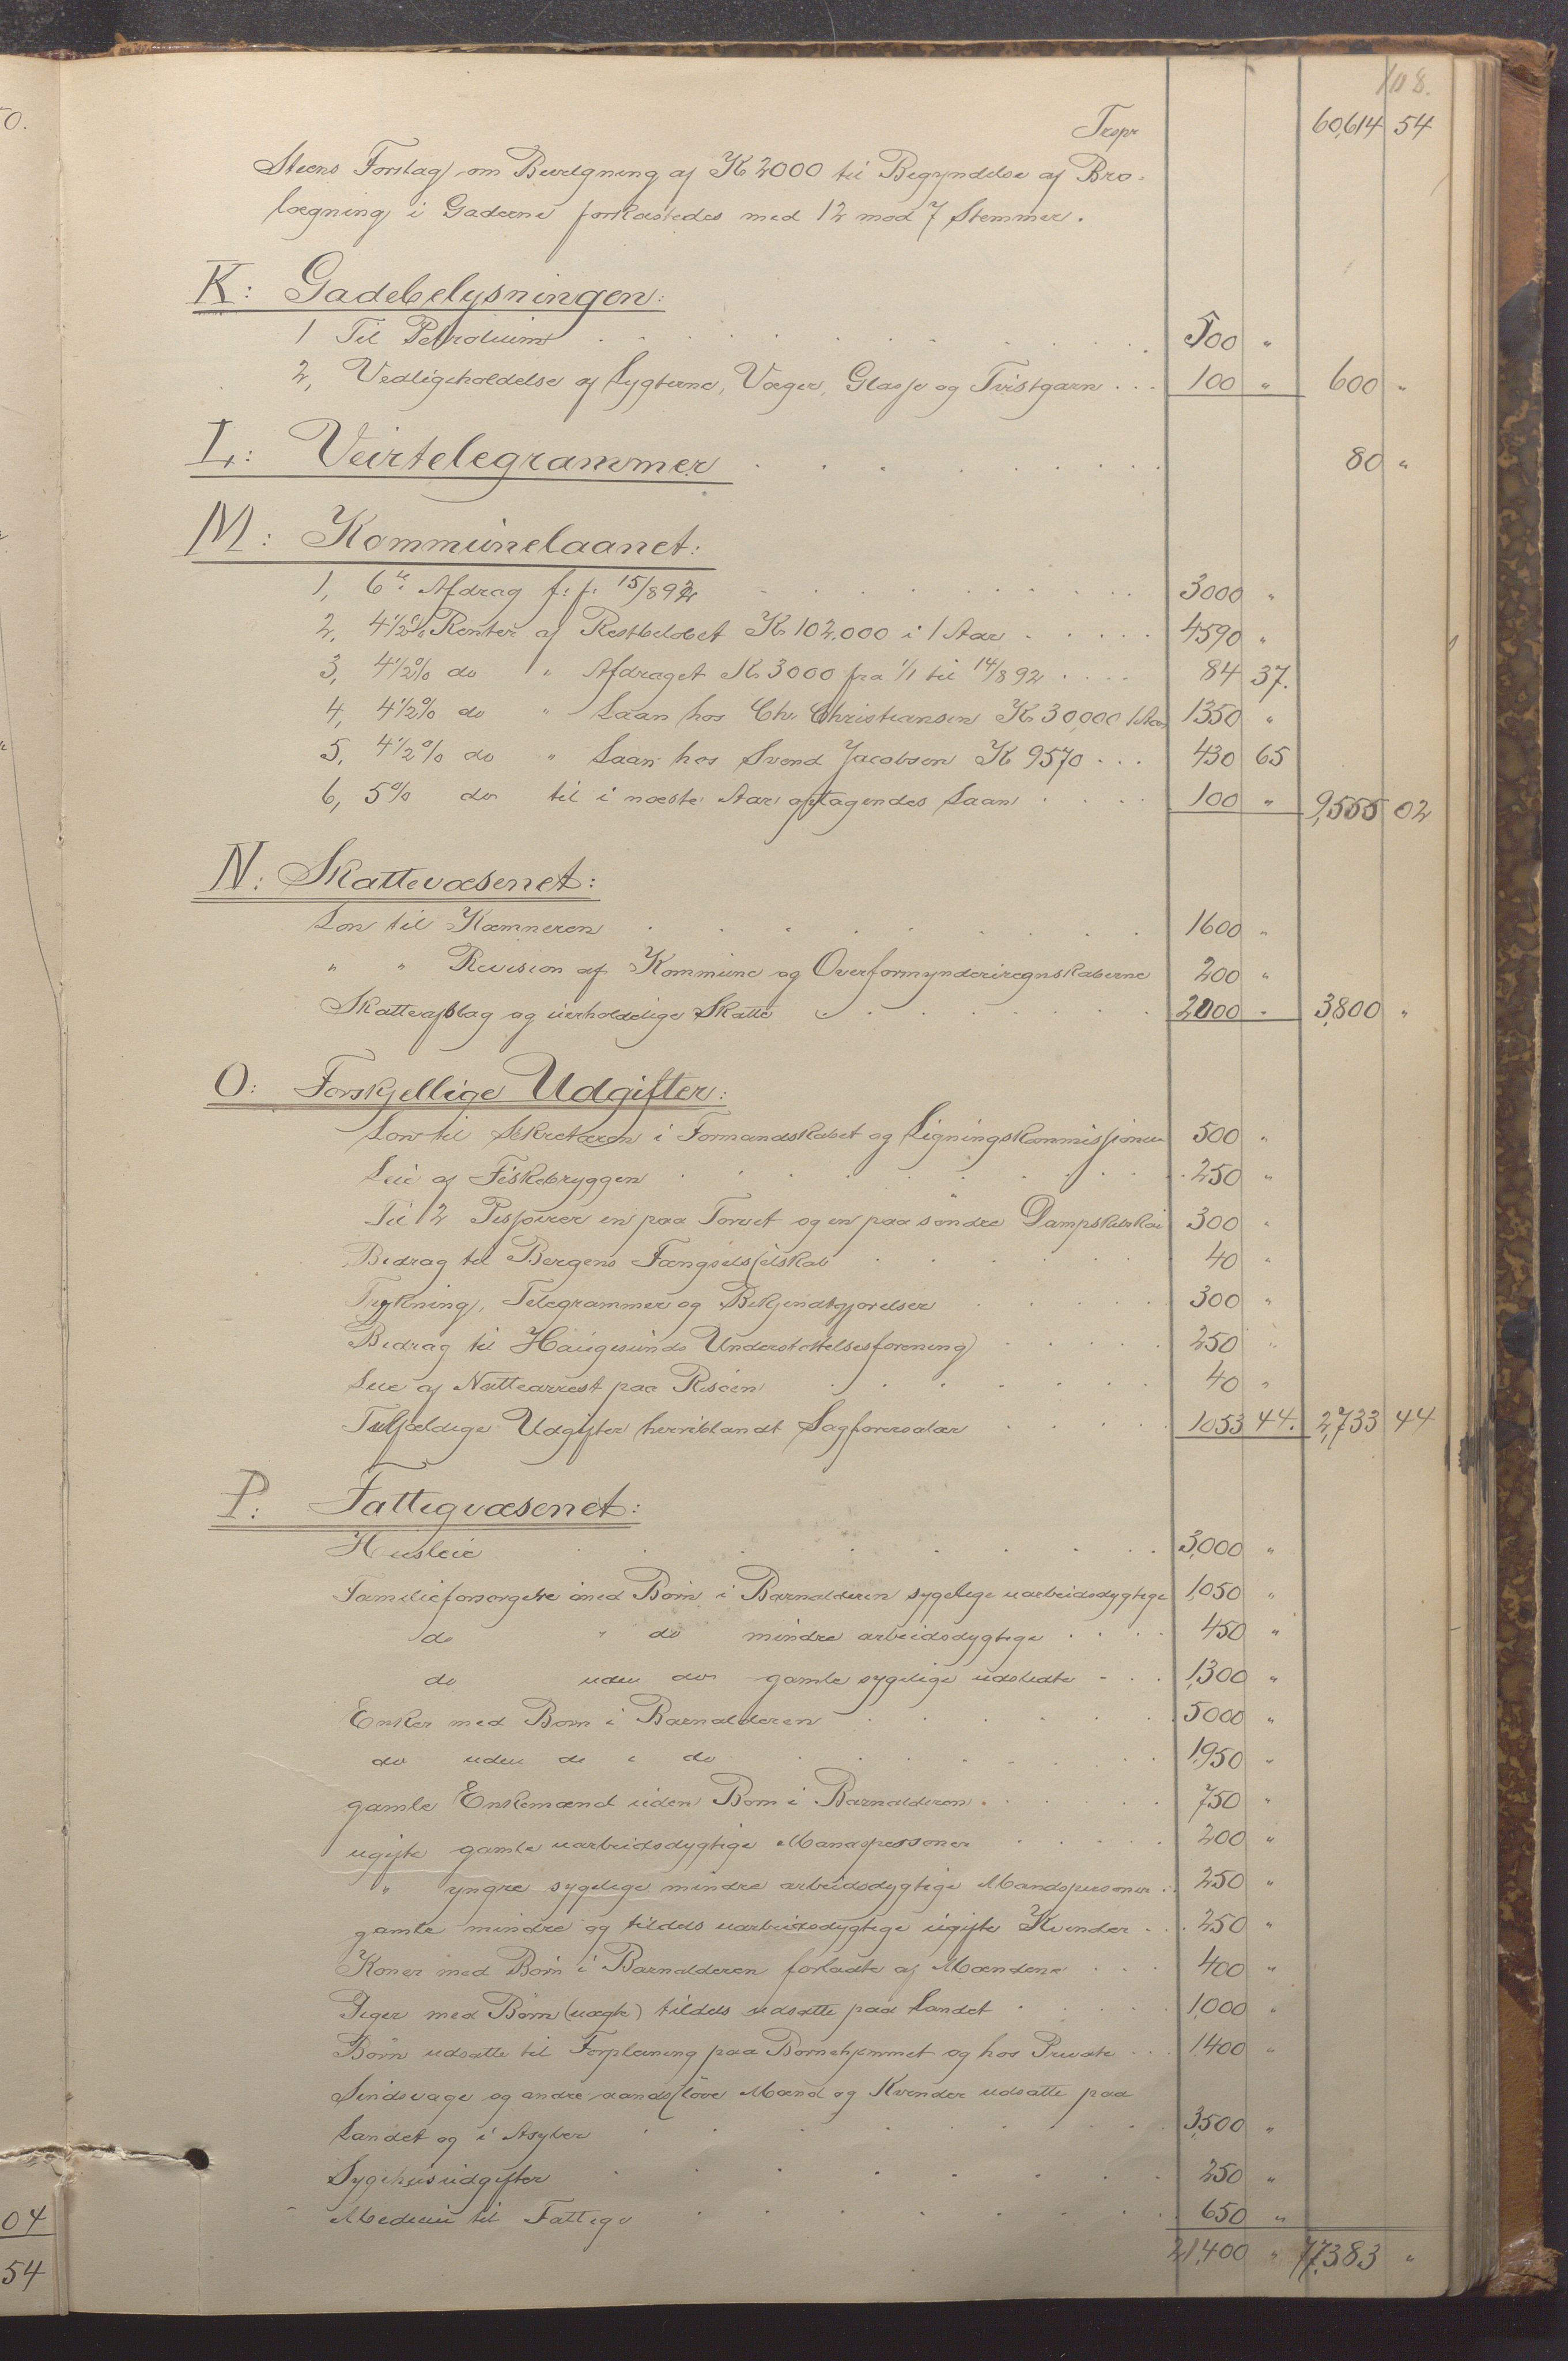 108.
Trspr 60,614 54
Steens Forslag om Bevilgning af K 2000 til Begyndelse af Bro-
lægning i Gaderne forkastedes med 12 mod 7 Stemmer.
K: Gadebelysningen:
1 Til Petroleum . . . 500 "
2, Vedligeholdelse af Lygterne, Væger, Glasse og Tvistgarn . . . 100 " 600 "
L: Veirtelegrammer . . . 80 "
M: Kommunelaanet:
1, 6te Afdrag f: f: 15/8 92 . . . 3000 "
2, 4 1/2 % Renter af Restbeløbet K 102.000 i 1 Aar . . . 4590 "
3, 4 1/2 % do " Afdraget K 3000 fra 1/1 til 14/8 92 . . . 84 37.
4, 4 1/2 % do " Laan hos Chr Christiansen K 30,000 1 Aar 1350 "
5, 4 1/2 % do " Laan hos Svend Jacobsen K 9570 . . . 430 65
6, 5 % do til i næste Aar optagendes Laan . . . 100 " 9,555 02
N: Skattevæsenet:
Løn til Kæmneren . . . 1600 "
" " Revision af Kommune og Overformynderiregnskaberne 200 "
Skatteafslag og uerholdelige Skatte . . . 2000 " 3,800 "
O: Forskjellige Udgifter:
Løn til Sekretæren i Formandskabet og Ligningskommissionen 500 "
Leie af Fiskebryggen . . . 250 "
Til 2 Pissoirer en paa Torvet og en paa søndre Dampskibskai 300 "
Bidrag til Bergens Fængselsselskab . . . 40 "
Trykning, Telegrammer og Bekjendtgjørelser . . . 300 "
Bidrag til Haugesunds Understøttelsesforening . . . 250 "
Leie af Nattearrest paa Risøen . . . 40 "
Tilfældige Udgifter heriblandt Sagførersalær . . . 1053 44. 2,733 44
P. Fattigvæsenet:
Husleie . . . 3,000 "
Familieforsørgere med Børn i Barnalderen sygelige uarbeidsdygtige 1,050 "
do " do mindre arbeidsdygtige . . . 450 "
do uden do gamle sygelige udslidte . . . 1,300 "
Enker med Børn i Barnalderen . . . 5000 "
do uden do i do . . . 1,950 "
gamle Enkemænd uden Børn i Barnalderen . . . 750 "
ugifte gamle uarbeidsdygtige Mandspersoner . . . 200 "
" yngre sygelige mindre arbeidsdygtige Mandspersoner . . 250 "
gamle mindre og tildels uarbeidsdygtige ugifte Kvinder . . . 250 "
Koner med Børn i Barnalderen forladte af Mændene . . . 400 "
Piger med Børn (uægte) tildels udsatte paa Landet . . . 1,000 "
Børn udsatte til Forpleining paa Børnehjemmet og hos Private . . . 1400 "
Sindsvage og andre aandssløve Mænd og Kvinder udsatte paa
Landet og i Asyler . . . 3,500 "
Sygehusudgifter . . . 250 "
Medicin til Fattige . . . 650 "
21,400 " 77,383 "
04
54